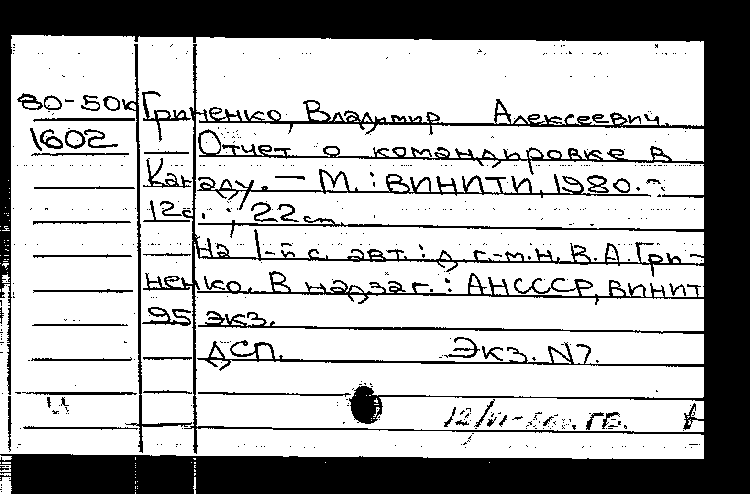 80-50к Гриненко, Владимир Алексеевич.
1602 Отчет о командировке в
Канаду. — М.: ВИНИТИ, 1980. -
12с.; 22 cm
На 1-й с. авт.: д. г.-м.н. В.А. Гри-
ненко. В надзаг.: АН СССР, ВИНИТ
95 экз.
ДСП. Экз. N7.
12/VI- ГБ.